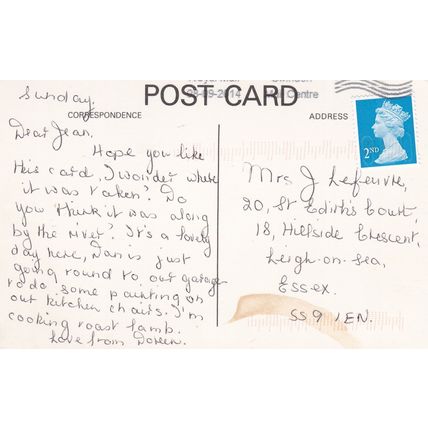 Royal Mail
Swindon
03-09-2014 Mail Centre
POST CARD
CORRESPONDENCE
ADDRESS
2ND
Sunday.
Dear Jean,
Hope you like
this card, I wonder where
it was taken? Do
you think it was along
by the river? It's a lovely
day here, Dan is just
going round to our garage
to do some painting on
our kitchen chairs. I'm
cooking roast lamb.
Love from Doreen.
Mrs J Lefeuvre,
20, St Edith's Court,
18, Hillside Crescent,
Leigh-on-Sea,
Essex.
SS9 1EN.